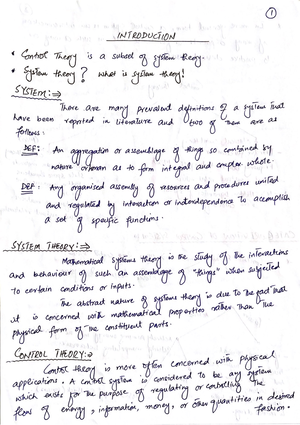 1
INTRODUCTION
* Control Theory is a subset of system theory.
* System theory? what is system theory!
SYSTEM :⇒
There are many prevalent definitions of a system that
have been reported in literature and two of them are as
follows:
DEF: An aggregation or assemblage of things so combined by
nature or man as to form integral and complex whole.
DEF: Any organised assembly of resources and procedures united
and regulated by interaction or interdependence to accomplish
a set of specific functions.
SYSTEM THEORY:⇒
Mathematical systems theory is the study of the interactions
and behaviour of such an assemblage of "things" when subjected
to certain conditions or inputs.
The abstract nature of systems theory is due to the fact that
it is concerned with mathematical properties rather than the
physical form of the constituent parts.
CONTROL THEORY:⇒
Control theory is more often concerned with physical
applications. A control system is considered to be any system
which exists for the purpose of regulating or controlling the
flow of energy, information, money, or other quantities in desired
fashion.